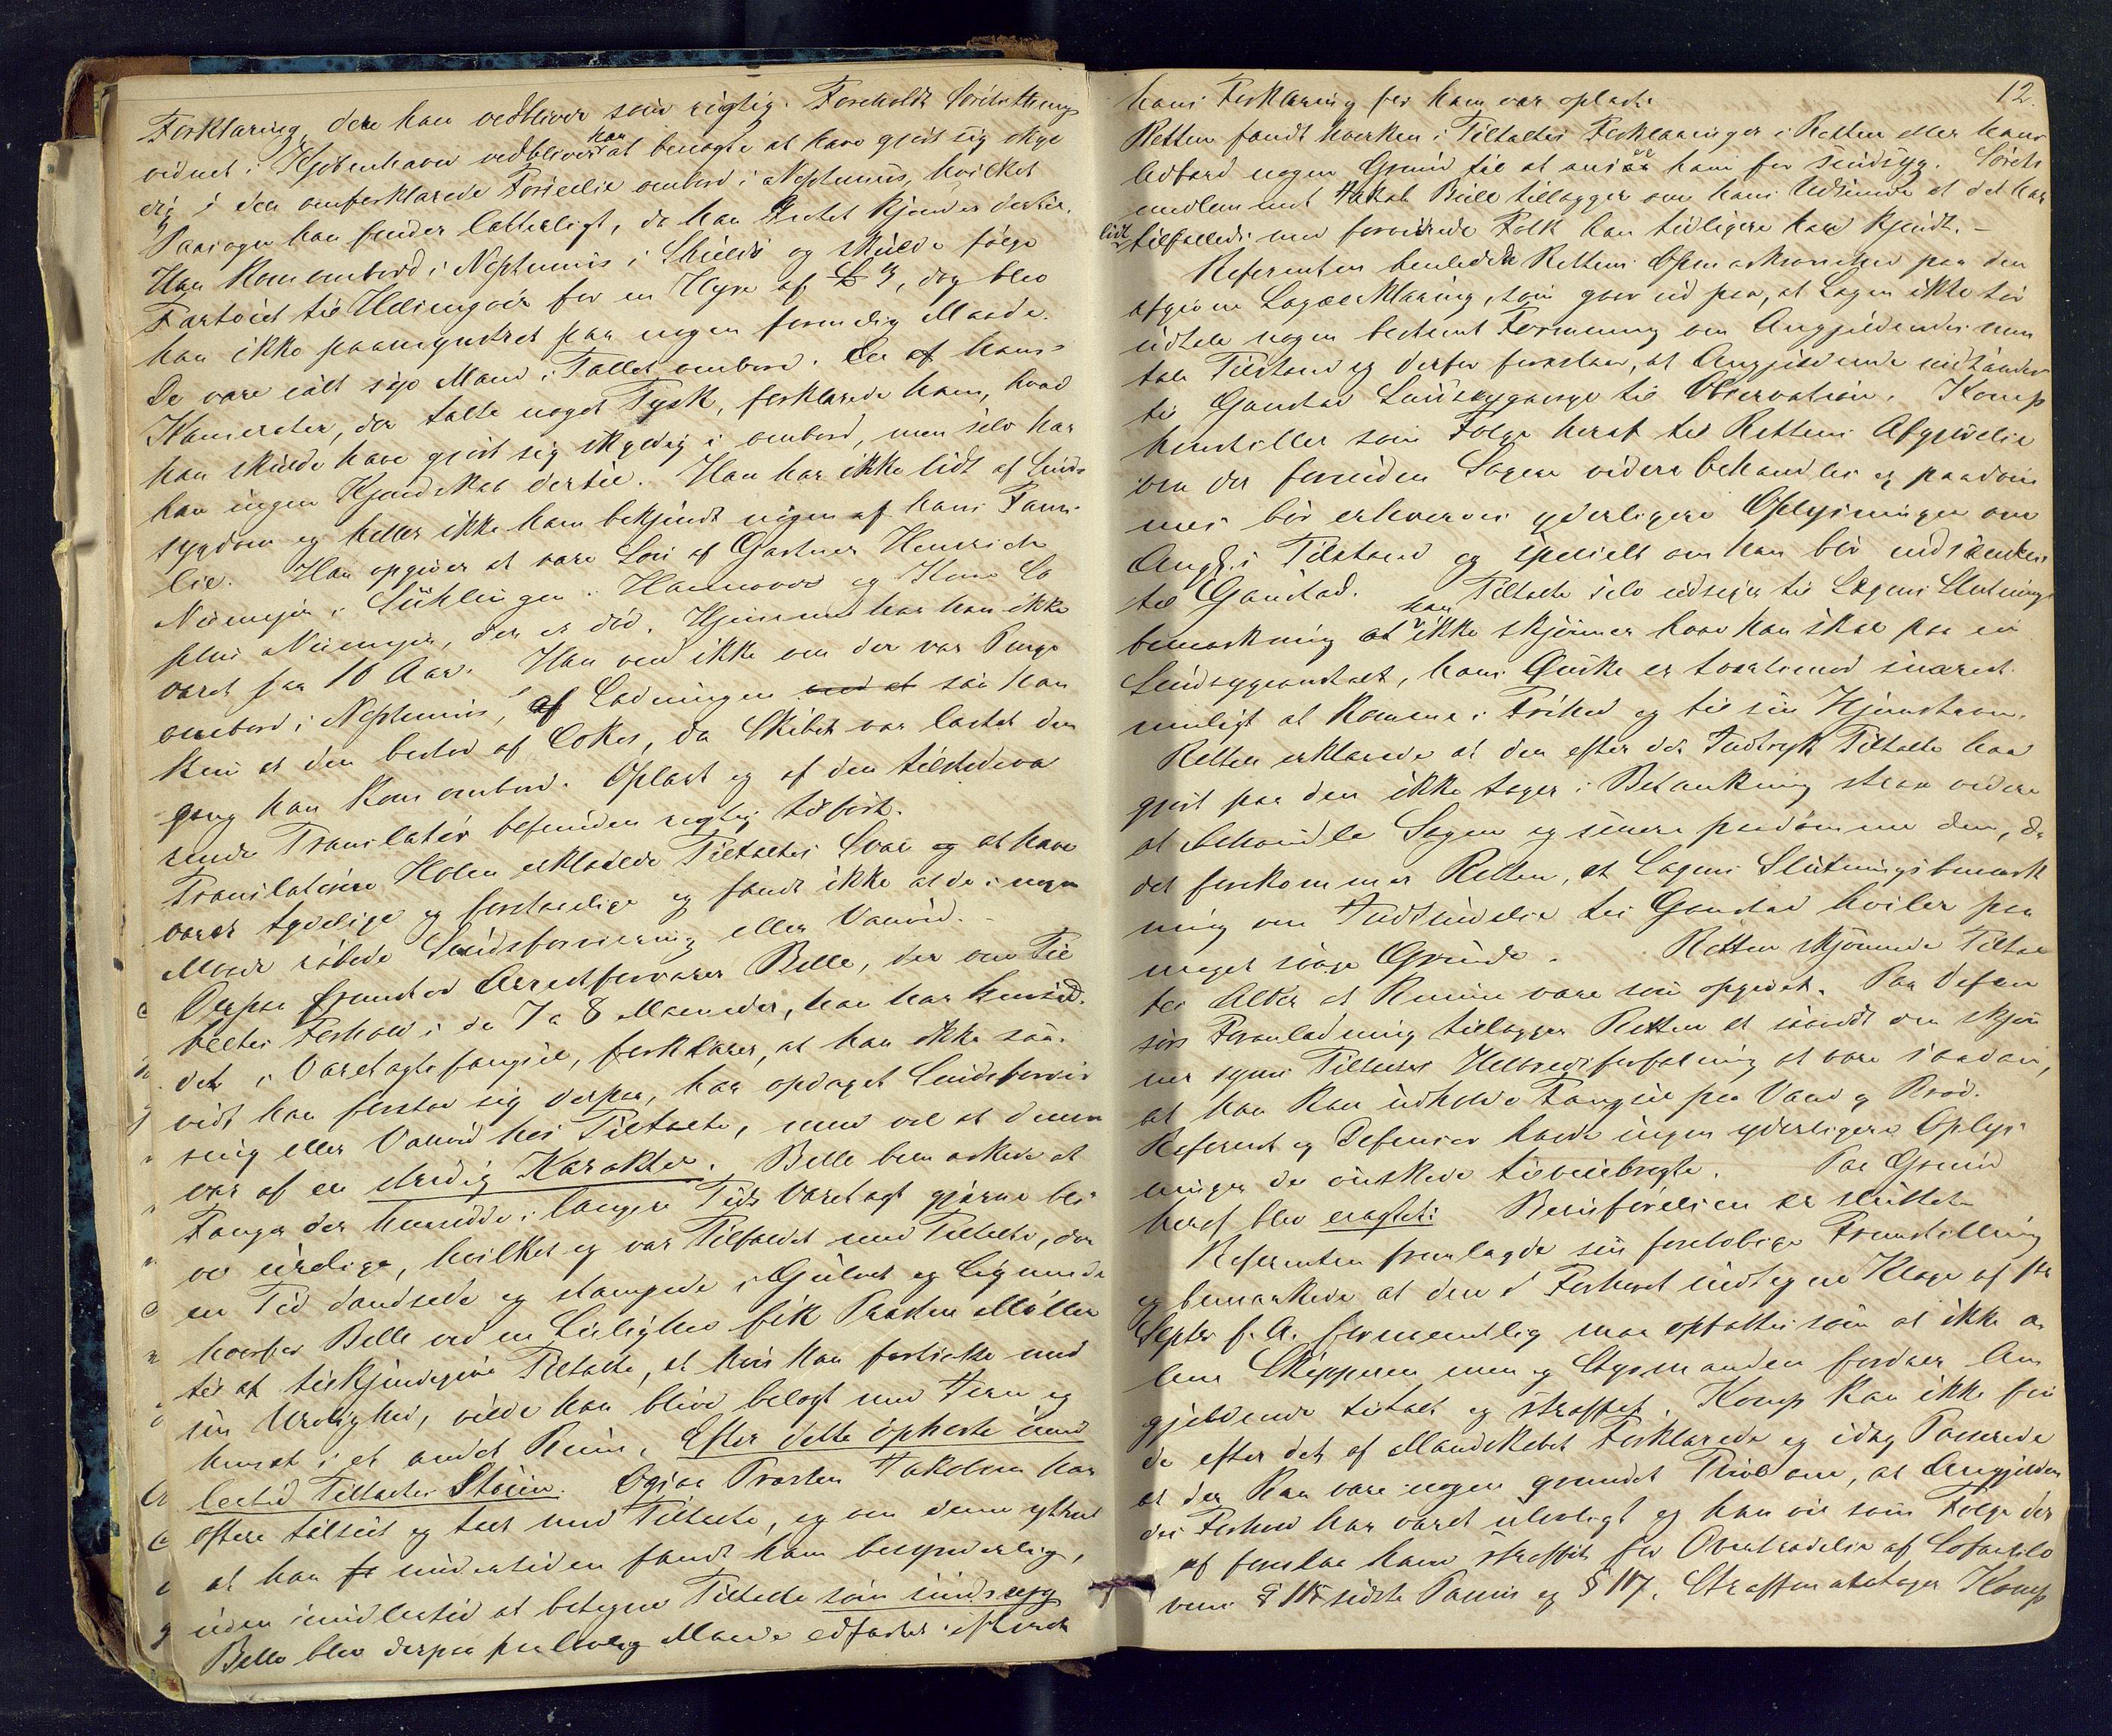 Forklaring, der han vedbliver som rigtig. Foreholdt Søretts
vidnet i Kjøbenhavn vedbliver han at benægte at have gjort sig skyl
dig i den omforklarede Forseelse ombord i Neptunus, hvilket
Paasagn han finder latterligt, da han Intet kjender dertil.
Han kom ombord i Neptunus i Shields og skulde følge
Fartøiet til Helsingør for en Hyre af £ 3, dog blev
han ikke paamynstret paa nogen formelig Maade.
De vare ialt syv Mand i Tallet ombord. En af hans
Kamerater, der talte noget Tysk, forklarede ham, hvad
han skulde have gjort sig skyldig i ombord, men selv har
han ingen Kjendskab dertil. Han har ikke lidt af Sinds
sygdom og heller ikke ham bekjendt nogen af hans Fami
lie. Han opgiver at være Søn af Gartner Henrich
Niemeyer i Sühlingen i Hannover og Kone So
phie Niemeyer, der er død. Hjemme har han ikke
været paa 10 Aar. Han ved ikke om der var Penge
ombord i Neptunus, af Ladningen saa han
kun at den bestod af Cokes, da Skibet var lastet den
gang han kom ombord. Oplæst og af den tilstedevæ
rende Translatør befunden rigtig tilført.
Translatør Holm erklærede Tiltaltes Svar at have
været tydelige og forstaaelige og fandt ikke at de i nogen
Maade røbede Sindsforvirring eller Vanvid.
Derpaa fremstod Arrestforvarer Belle, der om Til
taltes Forhold i de 7 a 8 Maaneder, han har hensid
det i Varetægtsfængsel, forklarer, at han ikke saa
vidt han forstod sig derpaa, har opdaget Sindsforvir
ring eller Vanvid hos Tiltalte, men vel at denne
var af en stridig Karakter. Belle bemærkede at
Fanger der hensidde i længere Tids Varetægt gjerne bli
ve urolige, hvilket og var Tilfældet med Tiltalte, der
en Tid dandsede og stampede i Gulvet og lignende
hvorfor Belle ved en Leilighed fik Presten Møller
til at tilkjendegive Tiltalte, at hvis han fortsatte med
sin Urolighed, vilde han blive belagt med Jern og
hensat i et andet Rum. Efter dette ophørte imid
lertid Tiltaltes Støien. Ogsaa Presten Jakobsen har
oftere tilseet og talt med Tiltalte, og om denne yttret
at han undertiden fandt ham besynderlig,
uden imidlertid at betegne Tiltalte som sindssyg
Belle blev derpaa paa lovlig Maade edfæstet efterat
12.
hans Forklaring for ham var oplæst
Retten fandt hverken i Tiltaltes Forklaringer i Retten eller hans
Adfærd nogen Grund til at ansee ham for sindssyg. Sørets
medlem mt Jakob Beile tillægger om hans Udseende at det har
lidt tilfælleds med forvirrede Folk han tidligere har kjendt. –
Referenten henledede Rettens Opmærksomhed paa den
afgivne Lægeerklæring, som gaar ud paa, at Lægen ikke tør
udtale nogen bestemt Formening om Angjældendes men
tale Tilstand og derfor foreslaar, at Angjældende indsendes
til Gaustad Sindssygeasyl til Observation. Komp
henstiller som Følge heraf til Rettens Afgjørelse
om der forinden Sagen videre behandles og paadøm
mes bør erhverves yderligere Oplysninger om
Angj.s Tilstand og specielt om han bør indsendes
til Gaustad. Tiltalte selv udsiger til Lægens Slutnings
bemærkning at han ikke skjønner hvad han skal paa en
Sindssygeanstalt, hans Ønske er tværtimod snarest
muligt at komme i Frihed og til sin Hjemstavn.
Retten erklærede at den efter det Indtryk Tiltalte har
gjort paa den ikke tager i Betænkning strax videre
at behandle Sagen og senere paadømme den, da
det forekommer Retten, at Lægens Slutningsbemærk
ning om Indsendelse til Gaustad hviler paa
meget svage Grunde. Retten skjønnede Tiltal
tes Alder at kunne være som opgivet. Paa Defen
sors Foranledning tillægger Retten at saavidt den skjøn
ner synes Tiltaltes Helbredsforfatning at være saadan,
at han kan udholde Fængsel paa Vand og Brød.
Referent og Defensor havde ingen yderligere Oplys
ninger de ønskede tilveiebragte. Paa Grund
heraf blev eragtet: Bevisførelsen er sluttet
Referenten fremlagde sin foreløbige Fremstilling
og bemærkede at den i Forhøret indtagne Klage af 1ste
Septbr f. A. formentlig maa opfattes som at ikke a
lene Skipperen men og Styrmanden fordrer An
gjældende tiltalt og straffet. Komp kan ikke fin
de efter det af Mandskabet Forklarede og idag Passerede
at der kan være nogen grundet Tvivl om, at Angjælden
des Forhold har været ulovligt og han vil som Følge der
af foreslaa ham straffet for Overtrædelse af Søfartslo
vens § 115 sidste Passus og § 117. Straffen antager Komp